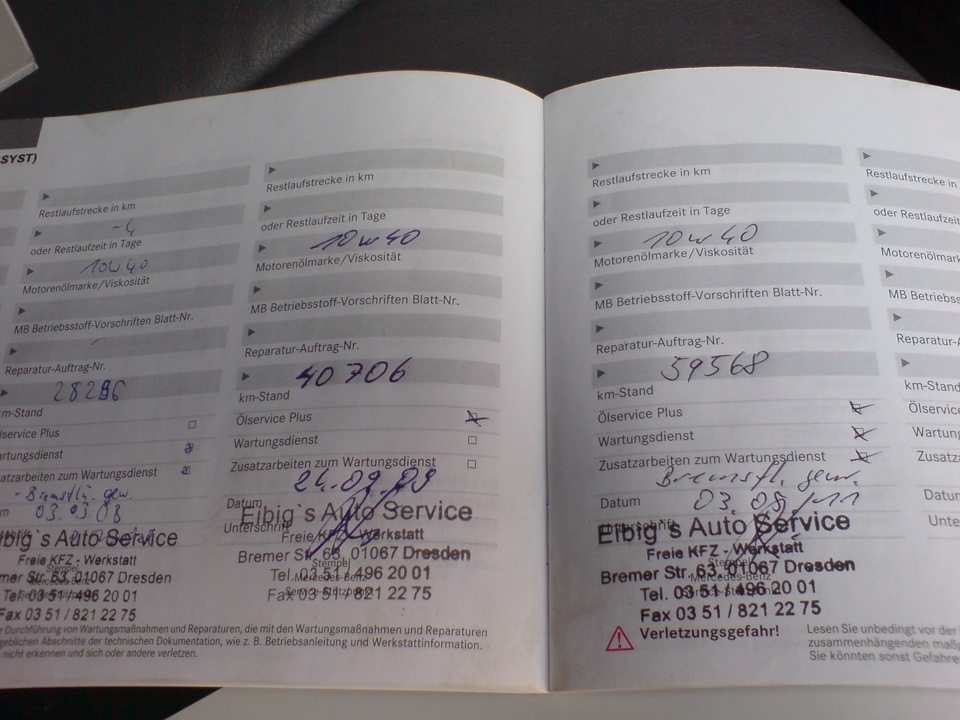 SYST)
Restlaufstrecke in km
-4
oder Restlaufzeit in Tage
10w40
Motorenölmarke/Viskosität
MB Betriebsstoff-Vorschriften Blatt-Nr.
Reparatur-Auftrag-Nr.
28296
km-Stand
lservice Plus
artungsdienst
usatzarbeiten zum Wartungsdienst
- Bremsfl. gew.
m 03.03.08
big`s Auto Service
Freie KFZ - Werkstatt
Stempel
mer Str. 63, 01067 Dresden
Mercedes-Benz
Tel. 03 51 / 496 20 01
Fax 03 51 / 821 22 75
Restlaufstrecke in km
oder Restlaufzeit in Tage
10w40
Motorenölmarke/Viskosität
MB Betriebsstoff-Vorschriften Blatt-Nr.
Reparatur-Auftrag-Nr.
40706
km-Stand
Ölservice Plus
Wartungsdienst
Zusatzarbeiten zum Wartungsdienst
Datum 24.09.09
Unterschrift
Elbig`s Auto Service
Freie KFZ - Werkstatt
Bremer Str. 63, 01067 Dresden
Stempel
Tel. 03 51 / 496 20 01
Mercedes-Benz
Fax 03 51 / 821 22 75
Service-Stützpunkt
r Durchführung von Wartungsmaßnahmen und Reparaturen, die mit den Wartungsmaßnahmen und Reparaturen
geblichen Abschnitte der technischen Dokumentation, wie z. B. Betriebsanleitung und Werkstattinformation.
nicht erkennen und sich oder andere verletzen.
Restlaufstrecke in km
oder Restlaufzeit in Tage
10w40
Motorenölmarke/Viskosität
MB Betriebsstoff-Vorschriften Blatt-Nr.
Reparatur-Auftrag-Nr.
59568
km-Stand
Ölservice Plus
Wartungsdienst
Zusatzarbeiten zum Wartungsdienst
Bremsfl. gew.
Datum 03.05/11
Unterschrift
Elbig`s Auto Service
Freie KFZ - Werkstatt
Stempel
Bremer Str. 63, 01067 Dresden
Mercedes-Benz
Tel. 03 51 / 496 20 01
Fax 03 51 / 821 22 75
Verletzungsgefahr!
Lesen Sie unbedingt vor der
zusammenhängenden maßg
Sie könnten sonst Gefahre
Restlaufstrecke in
oder Restlaufzeit
Motorenölmark
MB Betriebss
Reparatur-A
km-Stand
Ölservice
Wartung
Zusatz
Datu
Unte